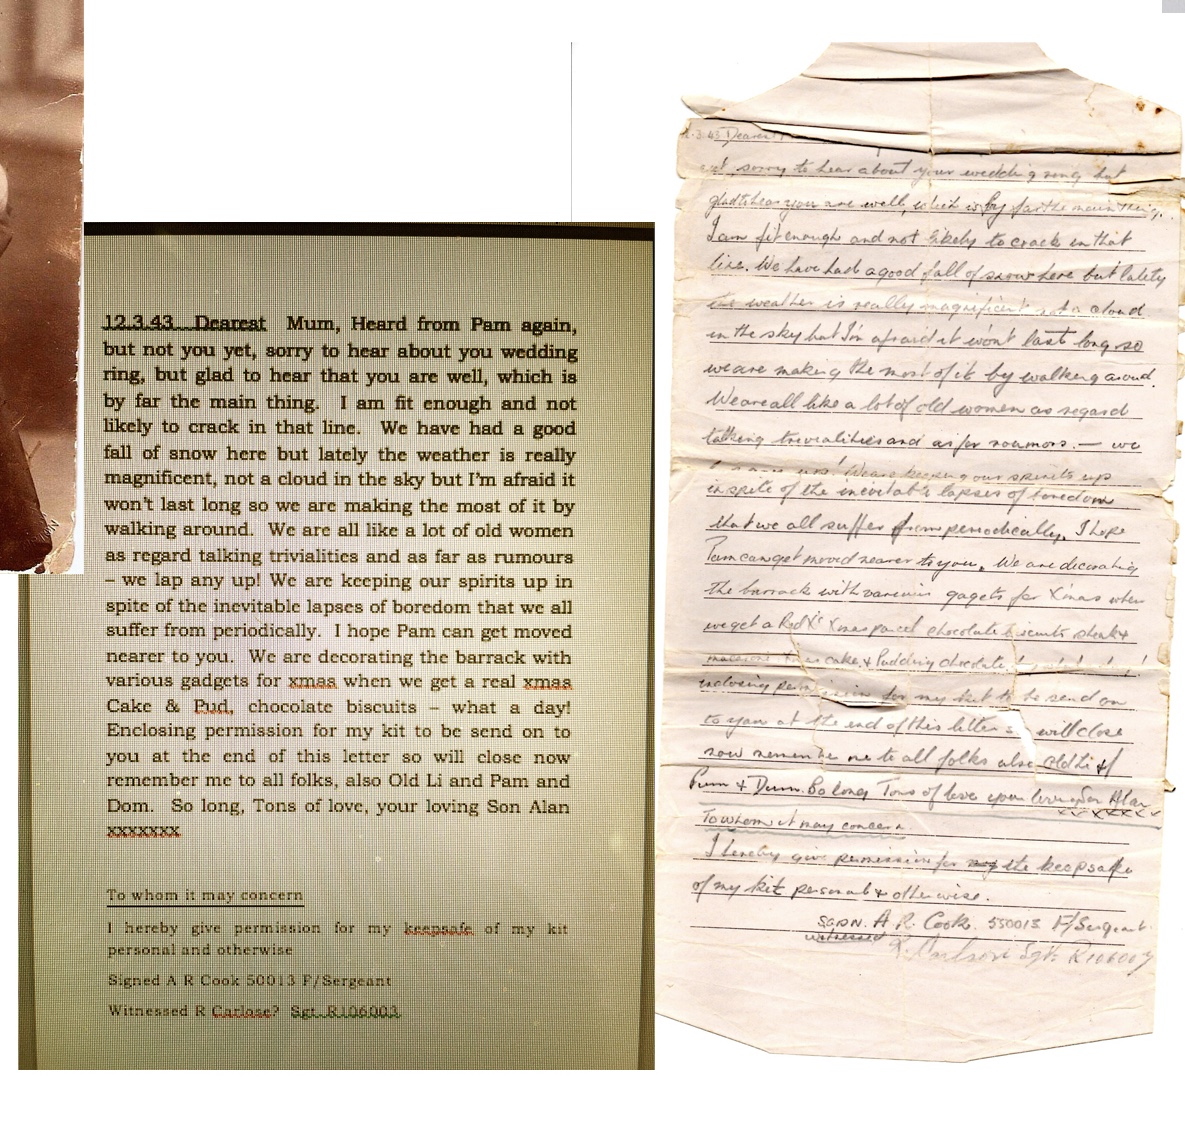 12.3.43 Dearest Mum, Heard from Pam again,
but not you yet, sorry to hear about you wedding
ring, but glad to hear that you are well, which is
by far the main thing. I am fit enough and not
likely to crack in that line. We have had a good
fall of snow here but lately the weather is really
magnificent, not a cloud in the sky but I'm afraid it
won't last long so we are making the most of it by
walking around. We are all like a lot of old women
as regard talking trivialities and as far as rumours
– we lap any up! We are keeping our spirits up in
spite of the inevitable lapses of boredom that we all
suffer from periodically. I hope Pam can get moved
nearer to you. We are decorating the barrack with
various gadgets for xmas when we get a real xmas
Cake & Pud, chocolate biscuits – what a day!
Enclosing permission for my kit to be send on to
you at the end of this letter so will close now
remember me to all folks, also Old Li and Pam and
Dom. So long, Tons of love, your loving Son Alan
xxxxxxx
To whom it may concern
I hereby give permission for my keepsafe of my kit
personal and otherwise
Signed A R Cook 50013 F/Sergeant
Witnessed R Carlose? Sgt R106003
.3.43 Dearest
yet, sorry to hear about your wedding ring but
glad to hear you are well, which is by far the main thing.
I am fit enough and not likely to crack in that
line. We have had a good fall of snow here but lately
the weather is really magnificent not a cloud
in the sky but I'm afraid it won't last long so
we are making the most of it by walking around.
We are all like a lot of old women as regard
talking trivialities and as for roumors. — we
up! We are keeping our spirits up
in spite of the inevitable lapses of boredom
that we all suffer from periodically. I hope
Pam can get moved nearer to you. We are decorating
the barrack with various gagets for Xmas when
we get a Red X Xmas parcel chocolate biscuits steak &
macaroni cake & Pudding chocolate
enclosing permission for my kit to be send on
to you at the end of this letter so will close
now remember me to all folks also old Li &
Pum & Dum. So long Tons of love your loving Son Alan
x x x x x x x
To whom it may concern
I hereby give permission for the keepsafe
of my kit personal & otherwise.
SGDN. A. R. Cook. 550013 F/Sergeant.
witnessed R. Sgt. R106003